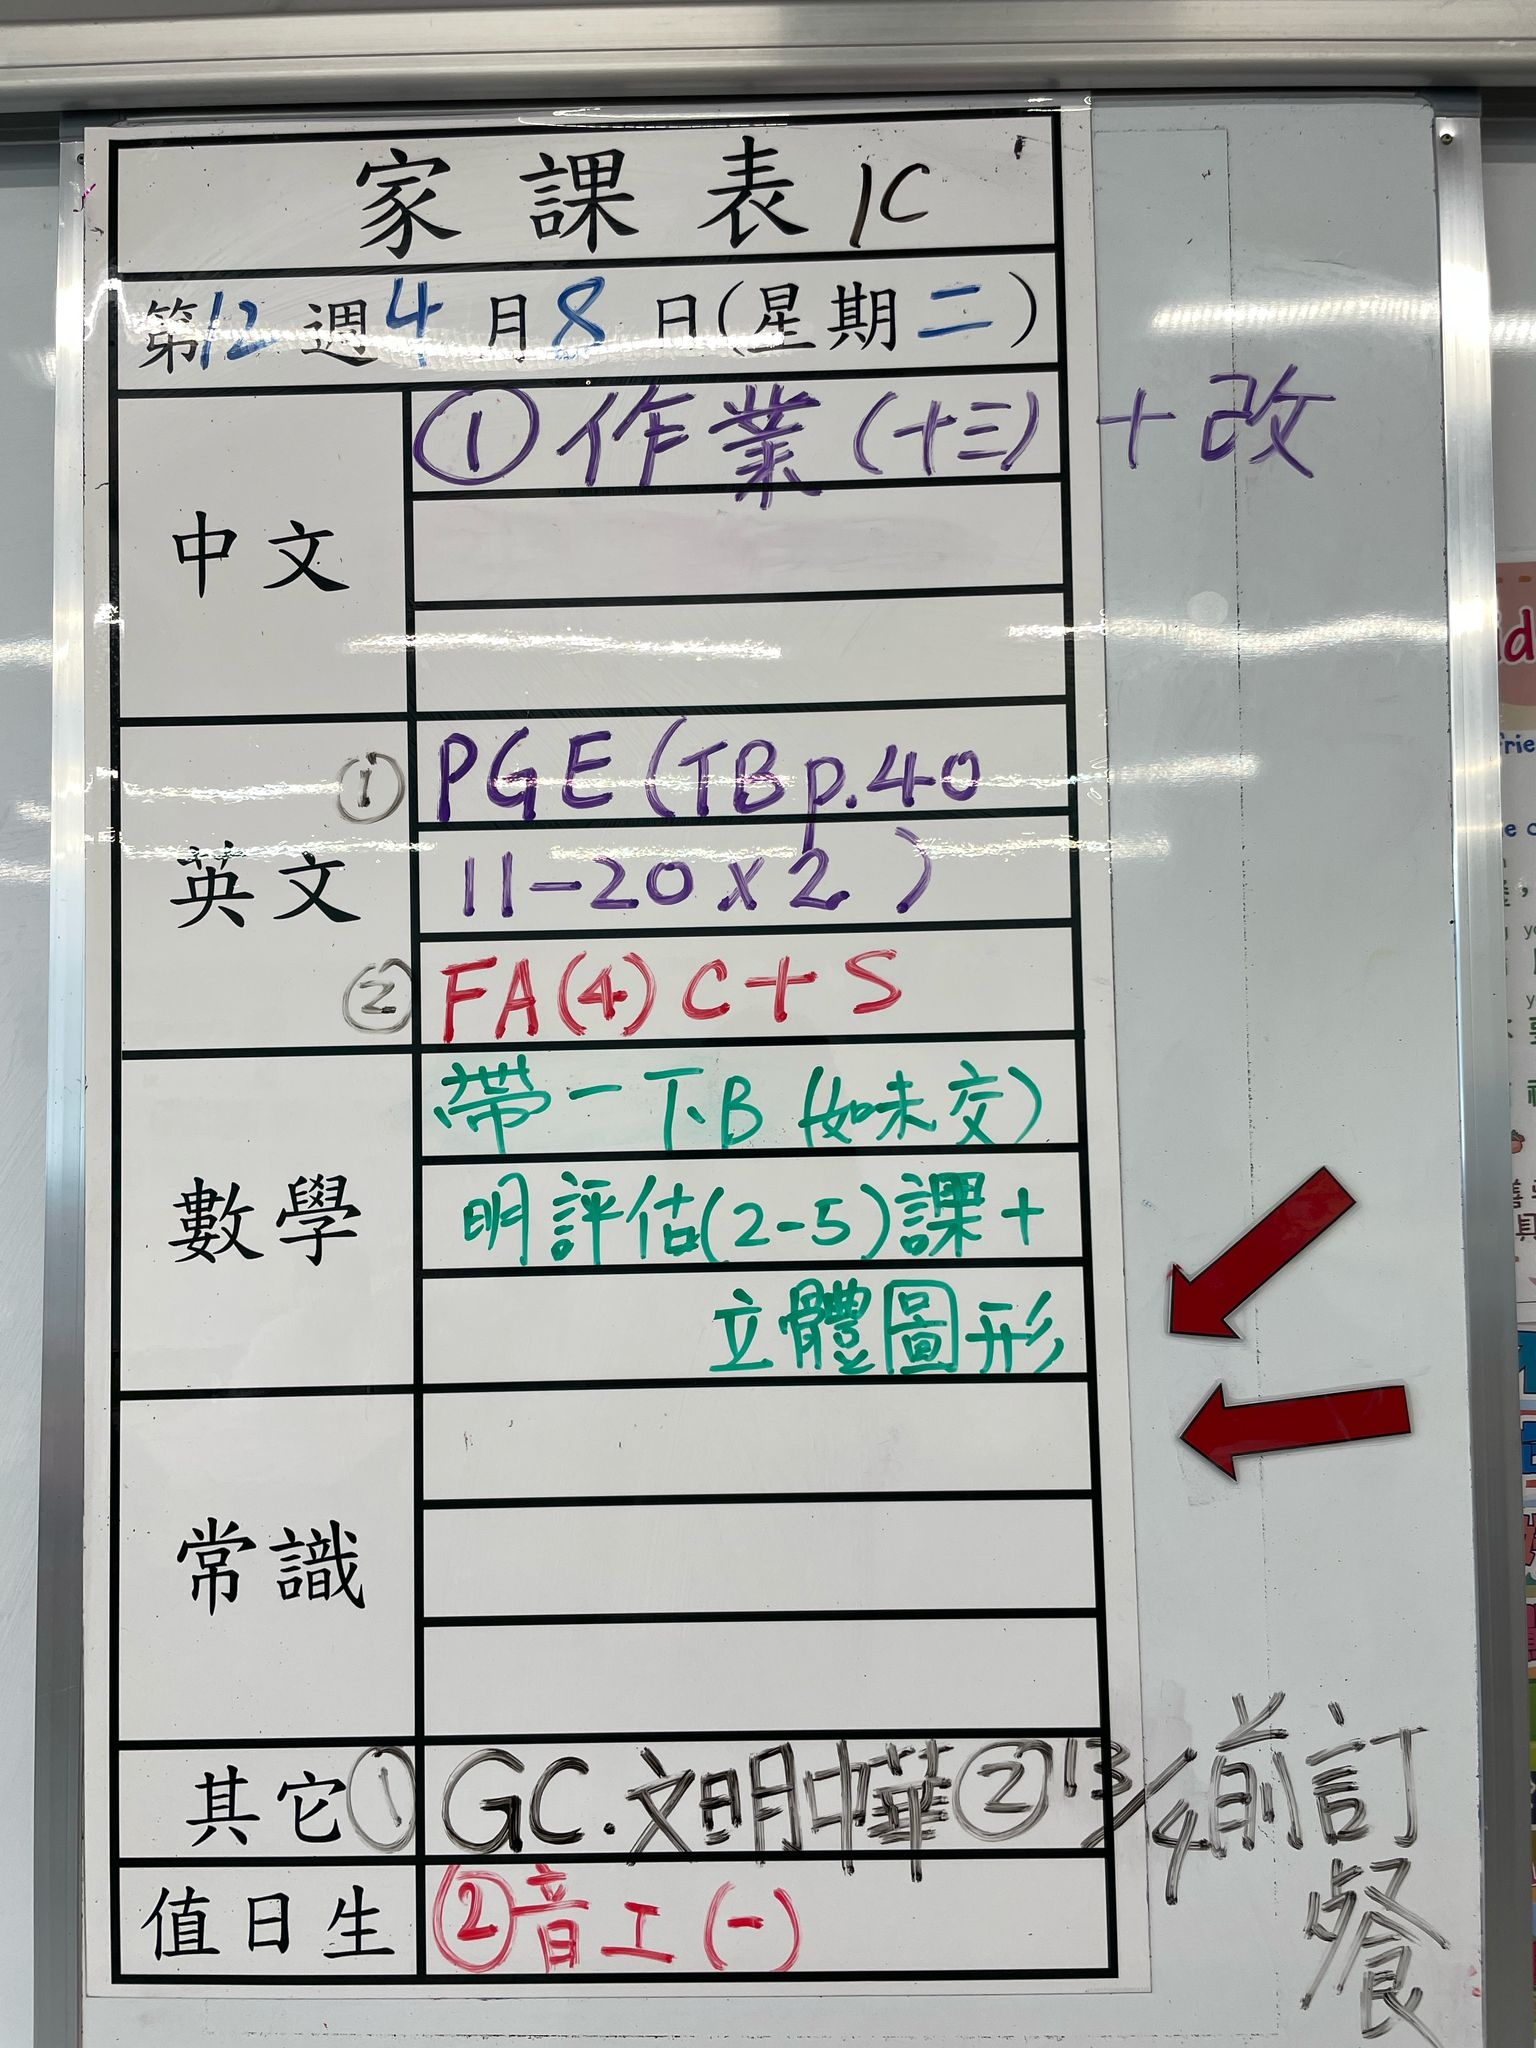 家課表 1C
第12週4月8日(星期二)
中文
①作業(十三)+改
英文
① PGE(TB p.40
11-20 x 2)
② FA(4) C+S
數學
帶一下B(如未交)
明評估(2-5)課+
立體圖形
常識
其它① GC.文明中華②13/4前訂
餐
值日生
②音工(一)